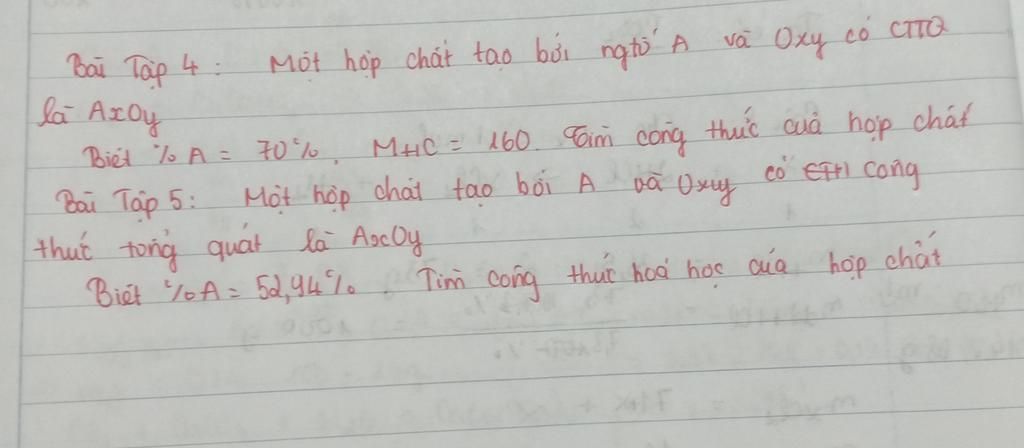 Bài Tập 4: Một hợp chất tạo bởi ngtố A và Oxy có CTTQ
là AxOy
Biết %A = 70%, MHC = 160. Tìm công thức của hợp chất
Bài Tập 5: Một hợp chất tạo bởi A và Oxy có công
thức tổng quát là AxOy
Biết %A = 52,94% Tìm công thức hoá học của hợp chất